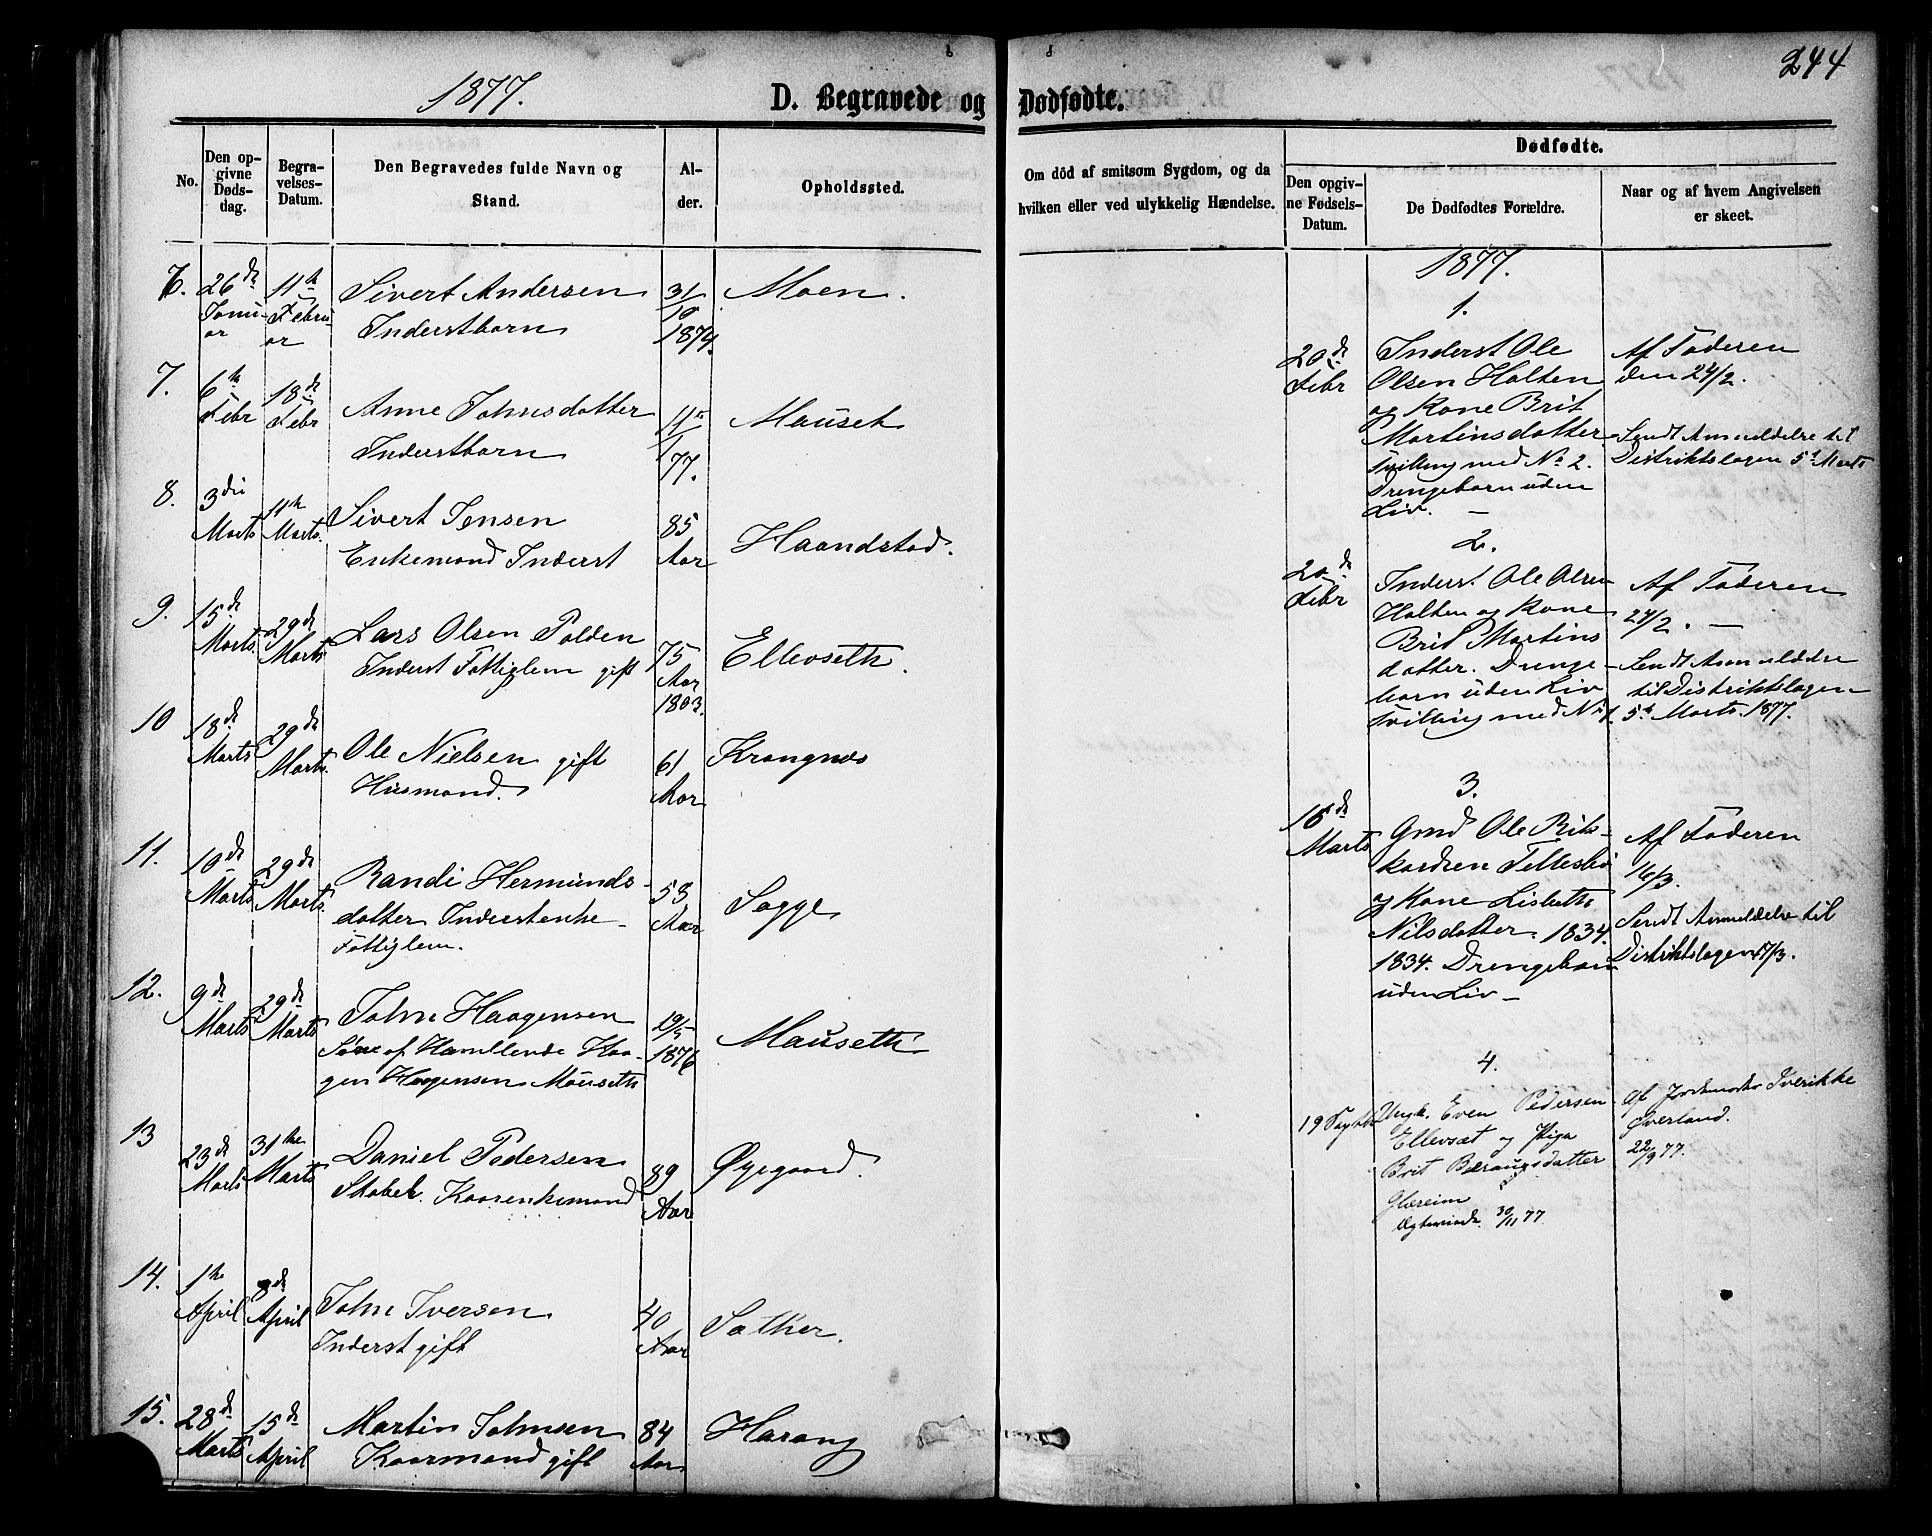 1877.
D. Begravede og
No.
Den op-
givne
Døds-
dag.
Begra-
velses-
Datum.
Den Begravedes fulde Navn og
Stand.
Al-
der.
Opholdssted.
6. 26de Janu- ar 11te Febru- ar Sivert Andersen Inderstbarn 31/10 1874. Moen.
7. 6te Febr 18de Febr Anne Johnsdatter Inderstbarn 11/1 77. Mauset
8. 3die Marts 11te Marts. Sivert Jensen Enkemand Inderst 85 Aar Haandstad.
9. 15de Marts. 29de Marts Lars Olsen Polden Inderst Fattiglem gift 75 Aar 1803. Ellevseth.
10 18de Marts 29de Marts. Ole Nielsen gift Husmand. 61 Aar Krangnæs
11. 10de Marts 29de Marts. Randi Hermunds- datter Inderstenke Fattiglem. 53 Aar Sogge
12. 9de Marts 29de Marts John Haagensen Søn af Handlende Haa- gen Haagensen Mauseth 19/5 1876 Mauseth
13 23de Marts 31te Marts Daniel Pedersen Stabek. Kaarenkemand 89 Aar Øyegaard.
14. 1te April 8de April John Iversen Inderst gift 40 Aar Sather.
15. 28de Marts 15de April Martin Johnsen Kaarmand gift 84 Aar Harang
244
Dødfødte.
Om död af smitsom Sygdom, og da
hvilken eller ved ulykkelig Hændelse.
Dødfødte.
Den opgiv-
ne Fødsels-
Datum.
De Dødfødtes Forældre.
Naar og af hvem Angivelsen
er skeet.
1877.
1.
20de
Febr
Inderst Ole
Olsen Holten
og Kone Brit
Martinsdatter
Tvilling med No 2.
Drengebarn uden
Liv. -
Af Faderen
den 24/2.
Sendt Anmeldelse til
Distriktslægen 5te Marts
2.
20de
Febr
Inderst Ole Olsen
Holten og Kone
Brit Martins
datter. Drenge-
barn uden Liv
Tvilling med No 1.
Af Faderen
24/2. -
Sendt Anmeldelse
til Distriktslægen
5te Marts. 1877.
3.
16de
Marts
Gmd Ole Rik-
kardsen Fellesbø
og Kone Lisbeth
Nilsdatter. 1834.
1834. Drengebarn
uden Liv -
Af Faderen
16/3.
Sendt Anmeldelse til
Distriktslægen 17/3.
4.
19 Septbr
Ungk. Even Pedersen
Ellevsæt og Piga
Brit Bæraugsdatter
Glæreim
Ægteviede 30/11 77
Af Jordemoder Iverikke
Øverland.
22/9 77.